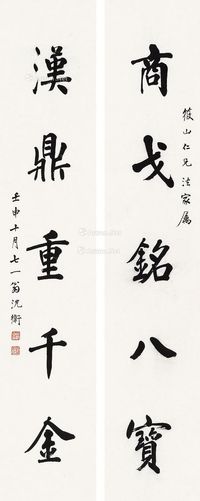 商戈銘八寶
筱山仁兄法家属
漢鼎重千金
壬申十月七一翁沈衛